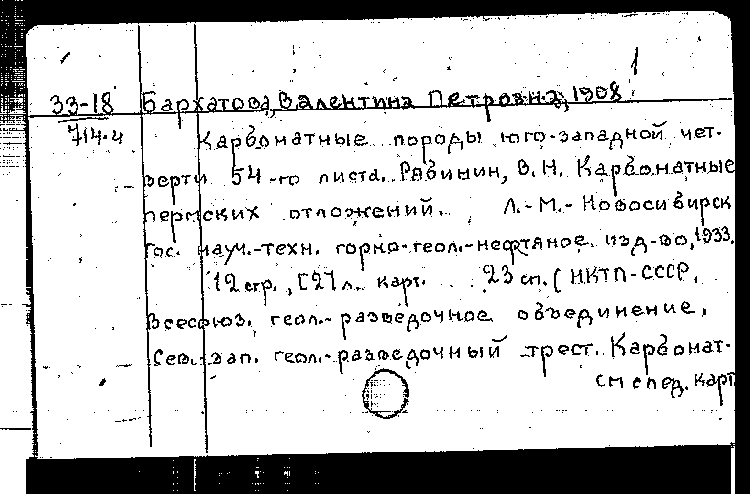 1
33-18 Бархатова, Валентина Петровна, 1908
714-4 Карбонатные породы юго-западной чет-
верти 54-го листа. Рябинин, В.Н. Карбонатные
пермских отложений. Л.-М.-Новосибирск
Гос. науч.-техн. горно-геол.-нефтяное изд-во, 1933.
12 стр., [2] л. карт. 23 сп. (НКТП-СССР.
Всесоюз. геол.-разведочное объединение.
Сев.-зап. геол.-разведочный трест. Карбонат-
см след. карт